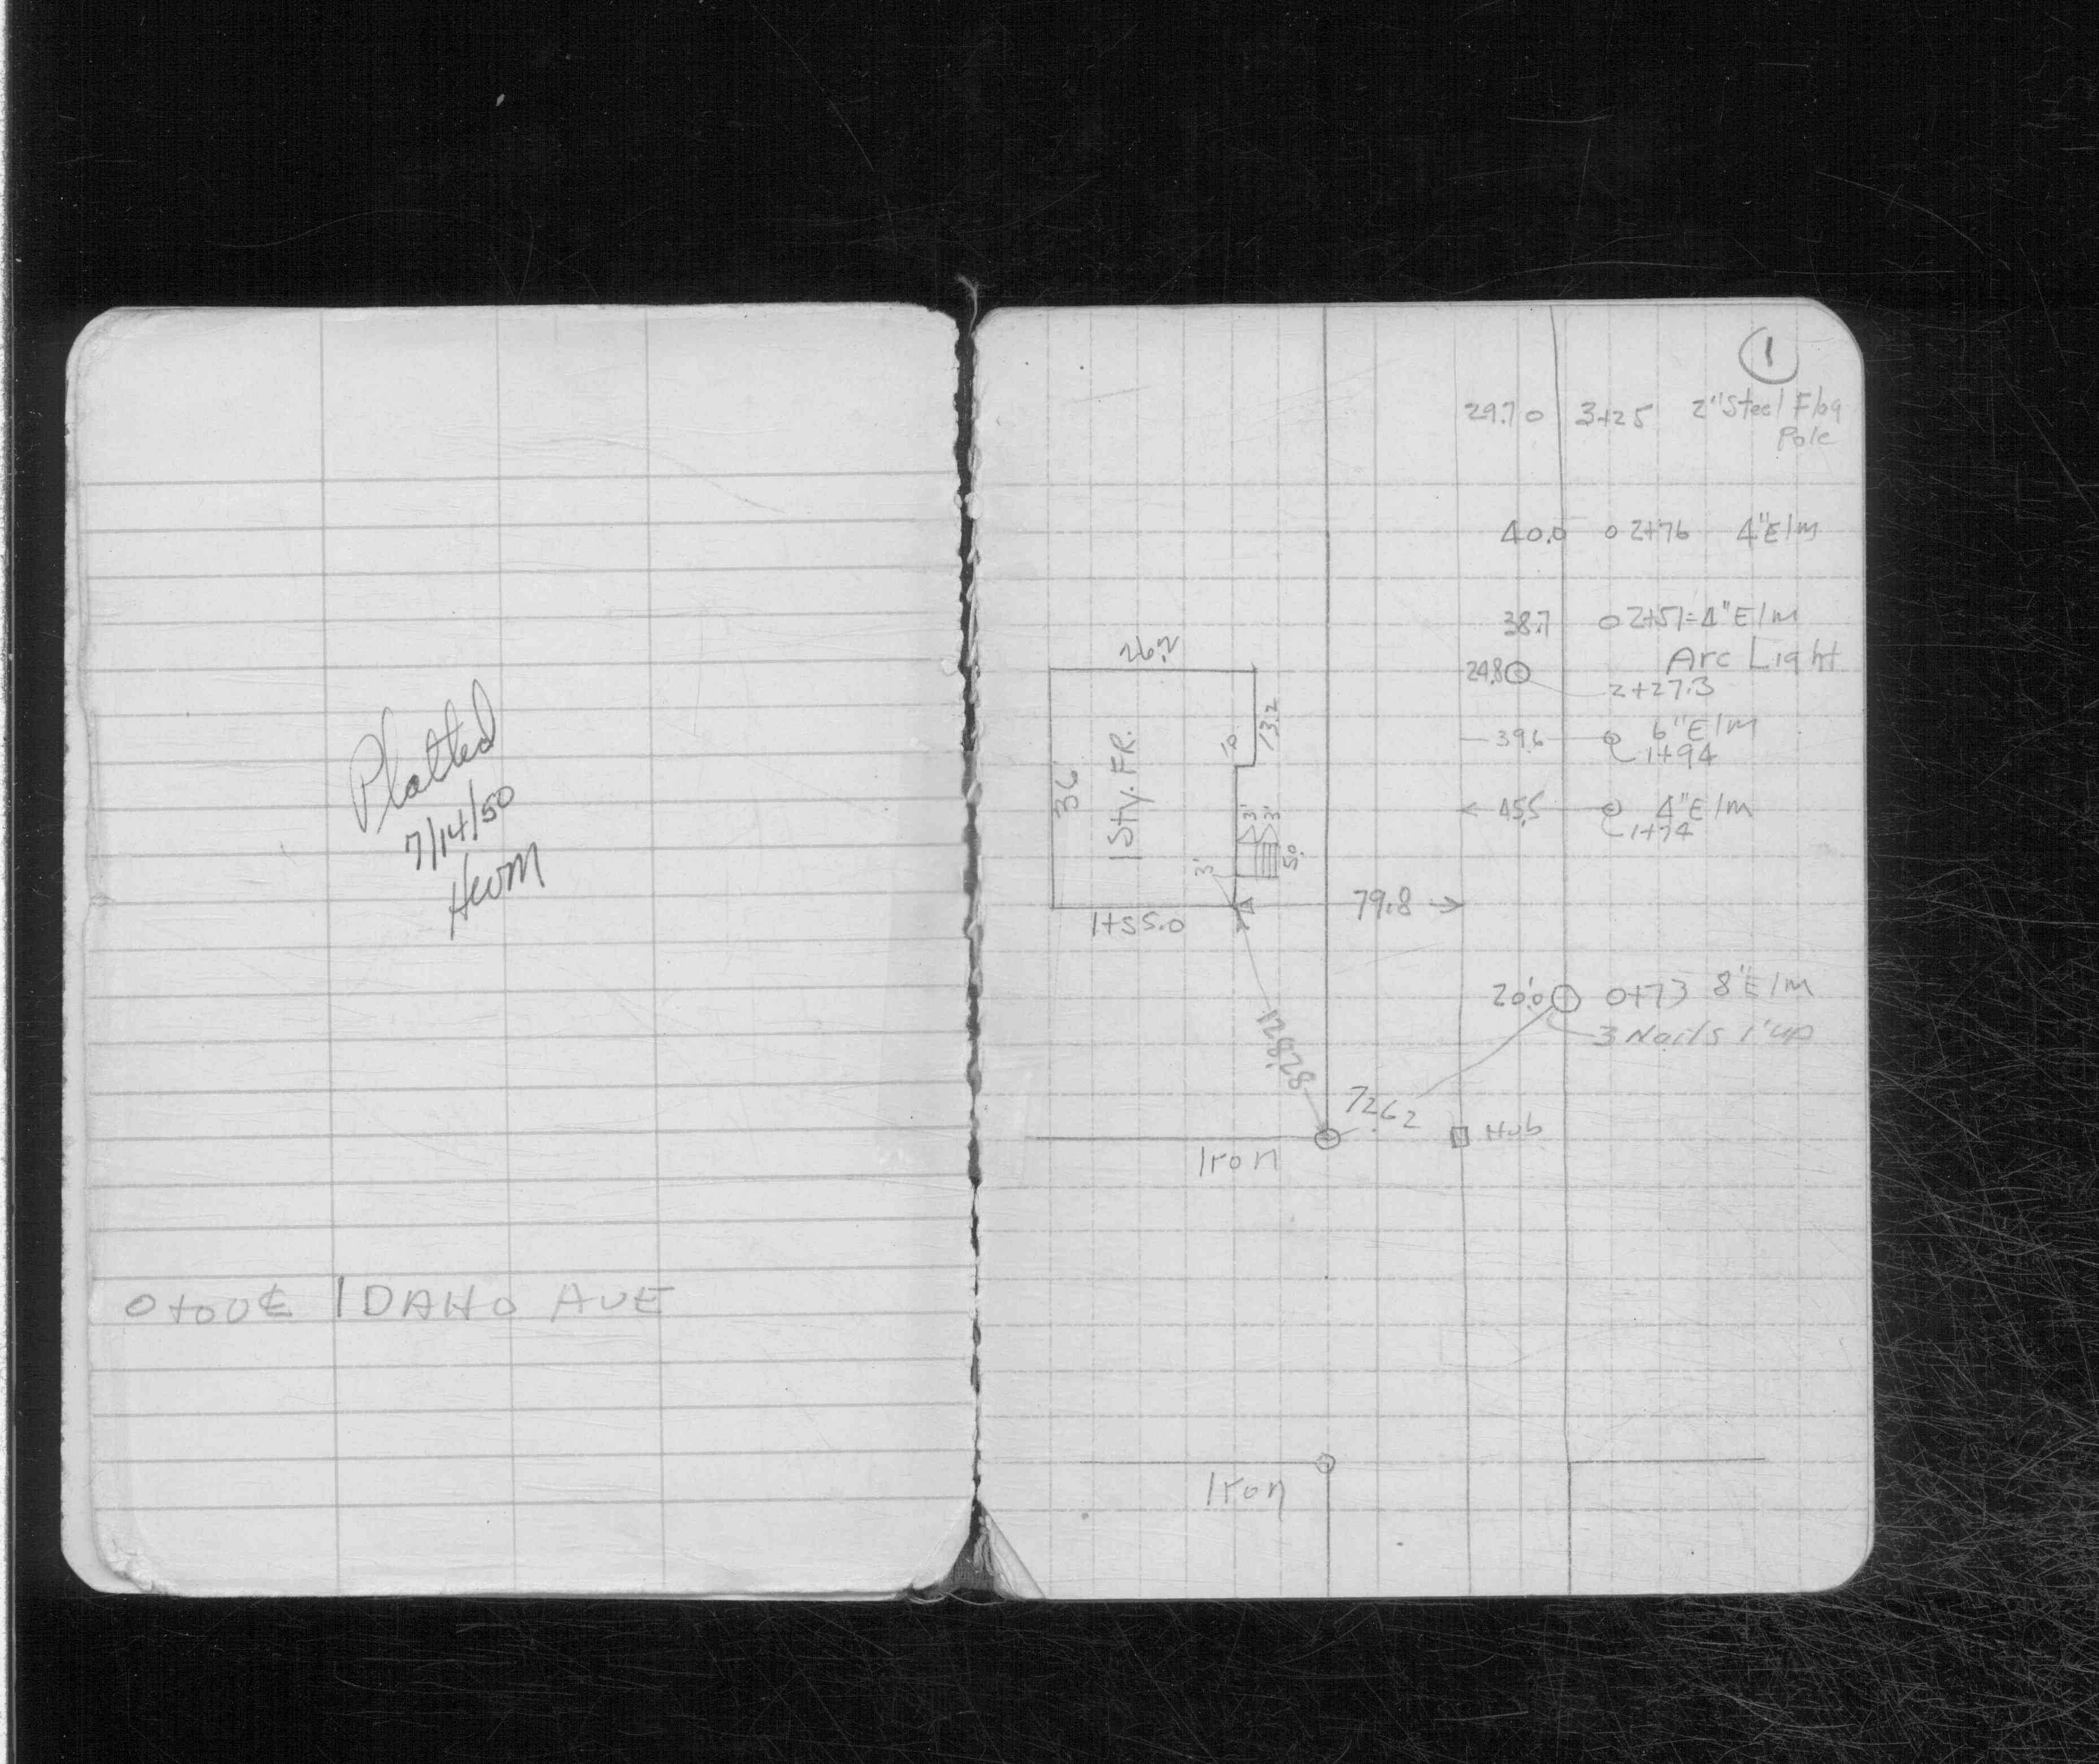 Platted
7/14/50
HWM
0+00 ℄ IDAHO AVE
1
29.7 0 3+25 2" Steel Flag
Pole
40.0 o 2+76 4" Elm
38.7 o 2+51= 4" Elm
Arc Light
24.8
2+27.3
26.2
39.6 6" Elm
1+94
13.2
10
36
1 Sty. FR.
45.5 4" Elm
1+74
3' 3'
3'
5.0
79.8
1+55.0
20.0 0+73 8" Elm
3 Nails 1' up
72.62
Hub
Iron
Iron